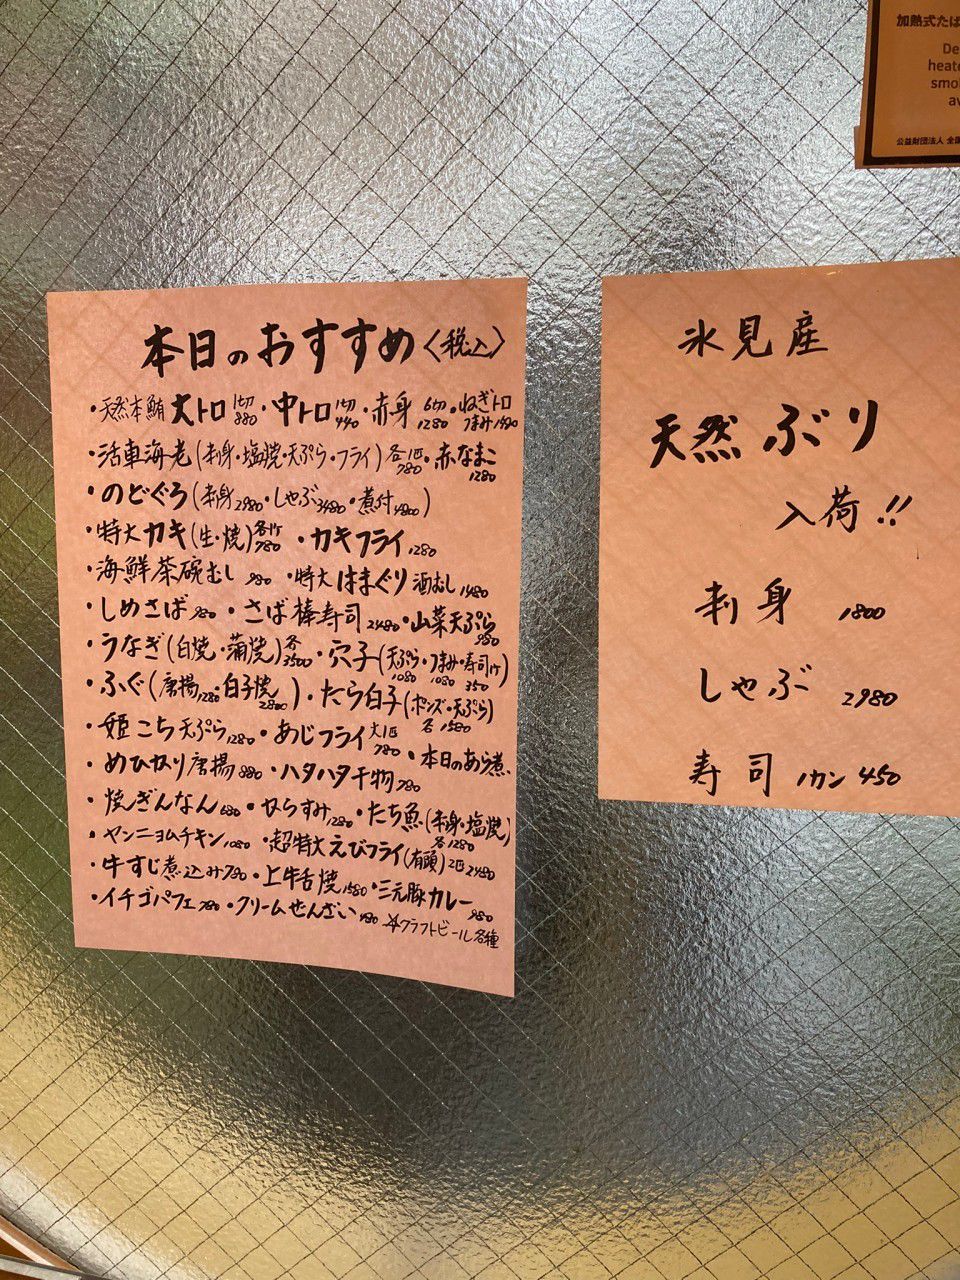 加熱式たば
De
heate
smol
av
公益財団法人 全国
本日のおすすめ〈税込〉
・天然本鮪 大トロ 1切 880・中トロ 1切 440・赤身 6切 1280・ねぎトロ つまみ1480
・活車海老(刺身・塩焼・天ぷら・フライ)各1匹 780・赤なまこ 1280
・のどぐろ(刺身2980・しゃぶ3480・煮付4800)
・特大カキ(生・焼)各1ヶ 780 ・カキフライ1280
・海鮮茶碗むし 980 ・特大はまぐり酒むし1480
・しめさば980・さば棒寿司2480・山菜天ぷら 980
・うなぎ(白焼・蒲焼)各 3500・穴子(天ぷら 1080・つまみ 1080・寿司1ケ 350)
・ふぐ(唐揚1280・白子焼 2800)・たら白子(ポンズ・天ぷら) 各1580
・姫こち天ぷら1280・あじフライ 大1匹 780・本日のあら煮
・めひかり唐揚880・ハタハタ干物780
・焼ぎんなん680・からすみ1280・たち魚(刺身・塩焼) 各1280
・ヤンニョムチキン1080・超特大えびフライ(有頭)2匹2480
・牛すじ煮込み780・上牛舌焼1580・三元豚カレー 980
・イチゴパフェ780・クリームぜんざい480 ☆クラフトビール各種
氷見産
天然ぶり
入荷!!
刺身 1800
しゃぶ 2980
寿司 1カン 450